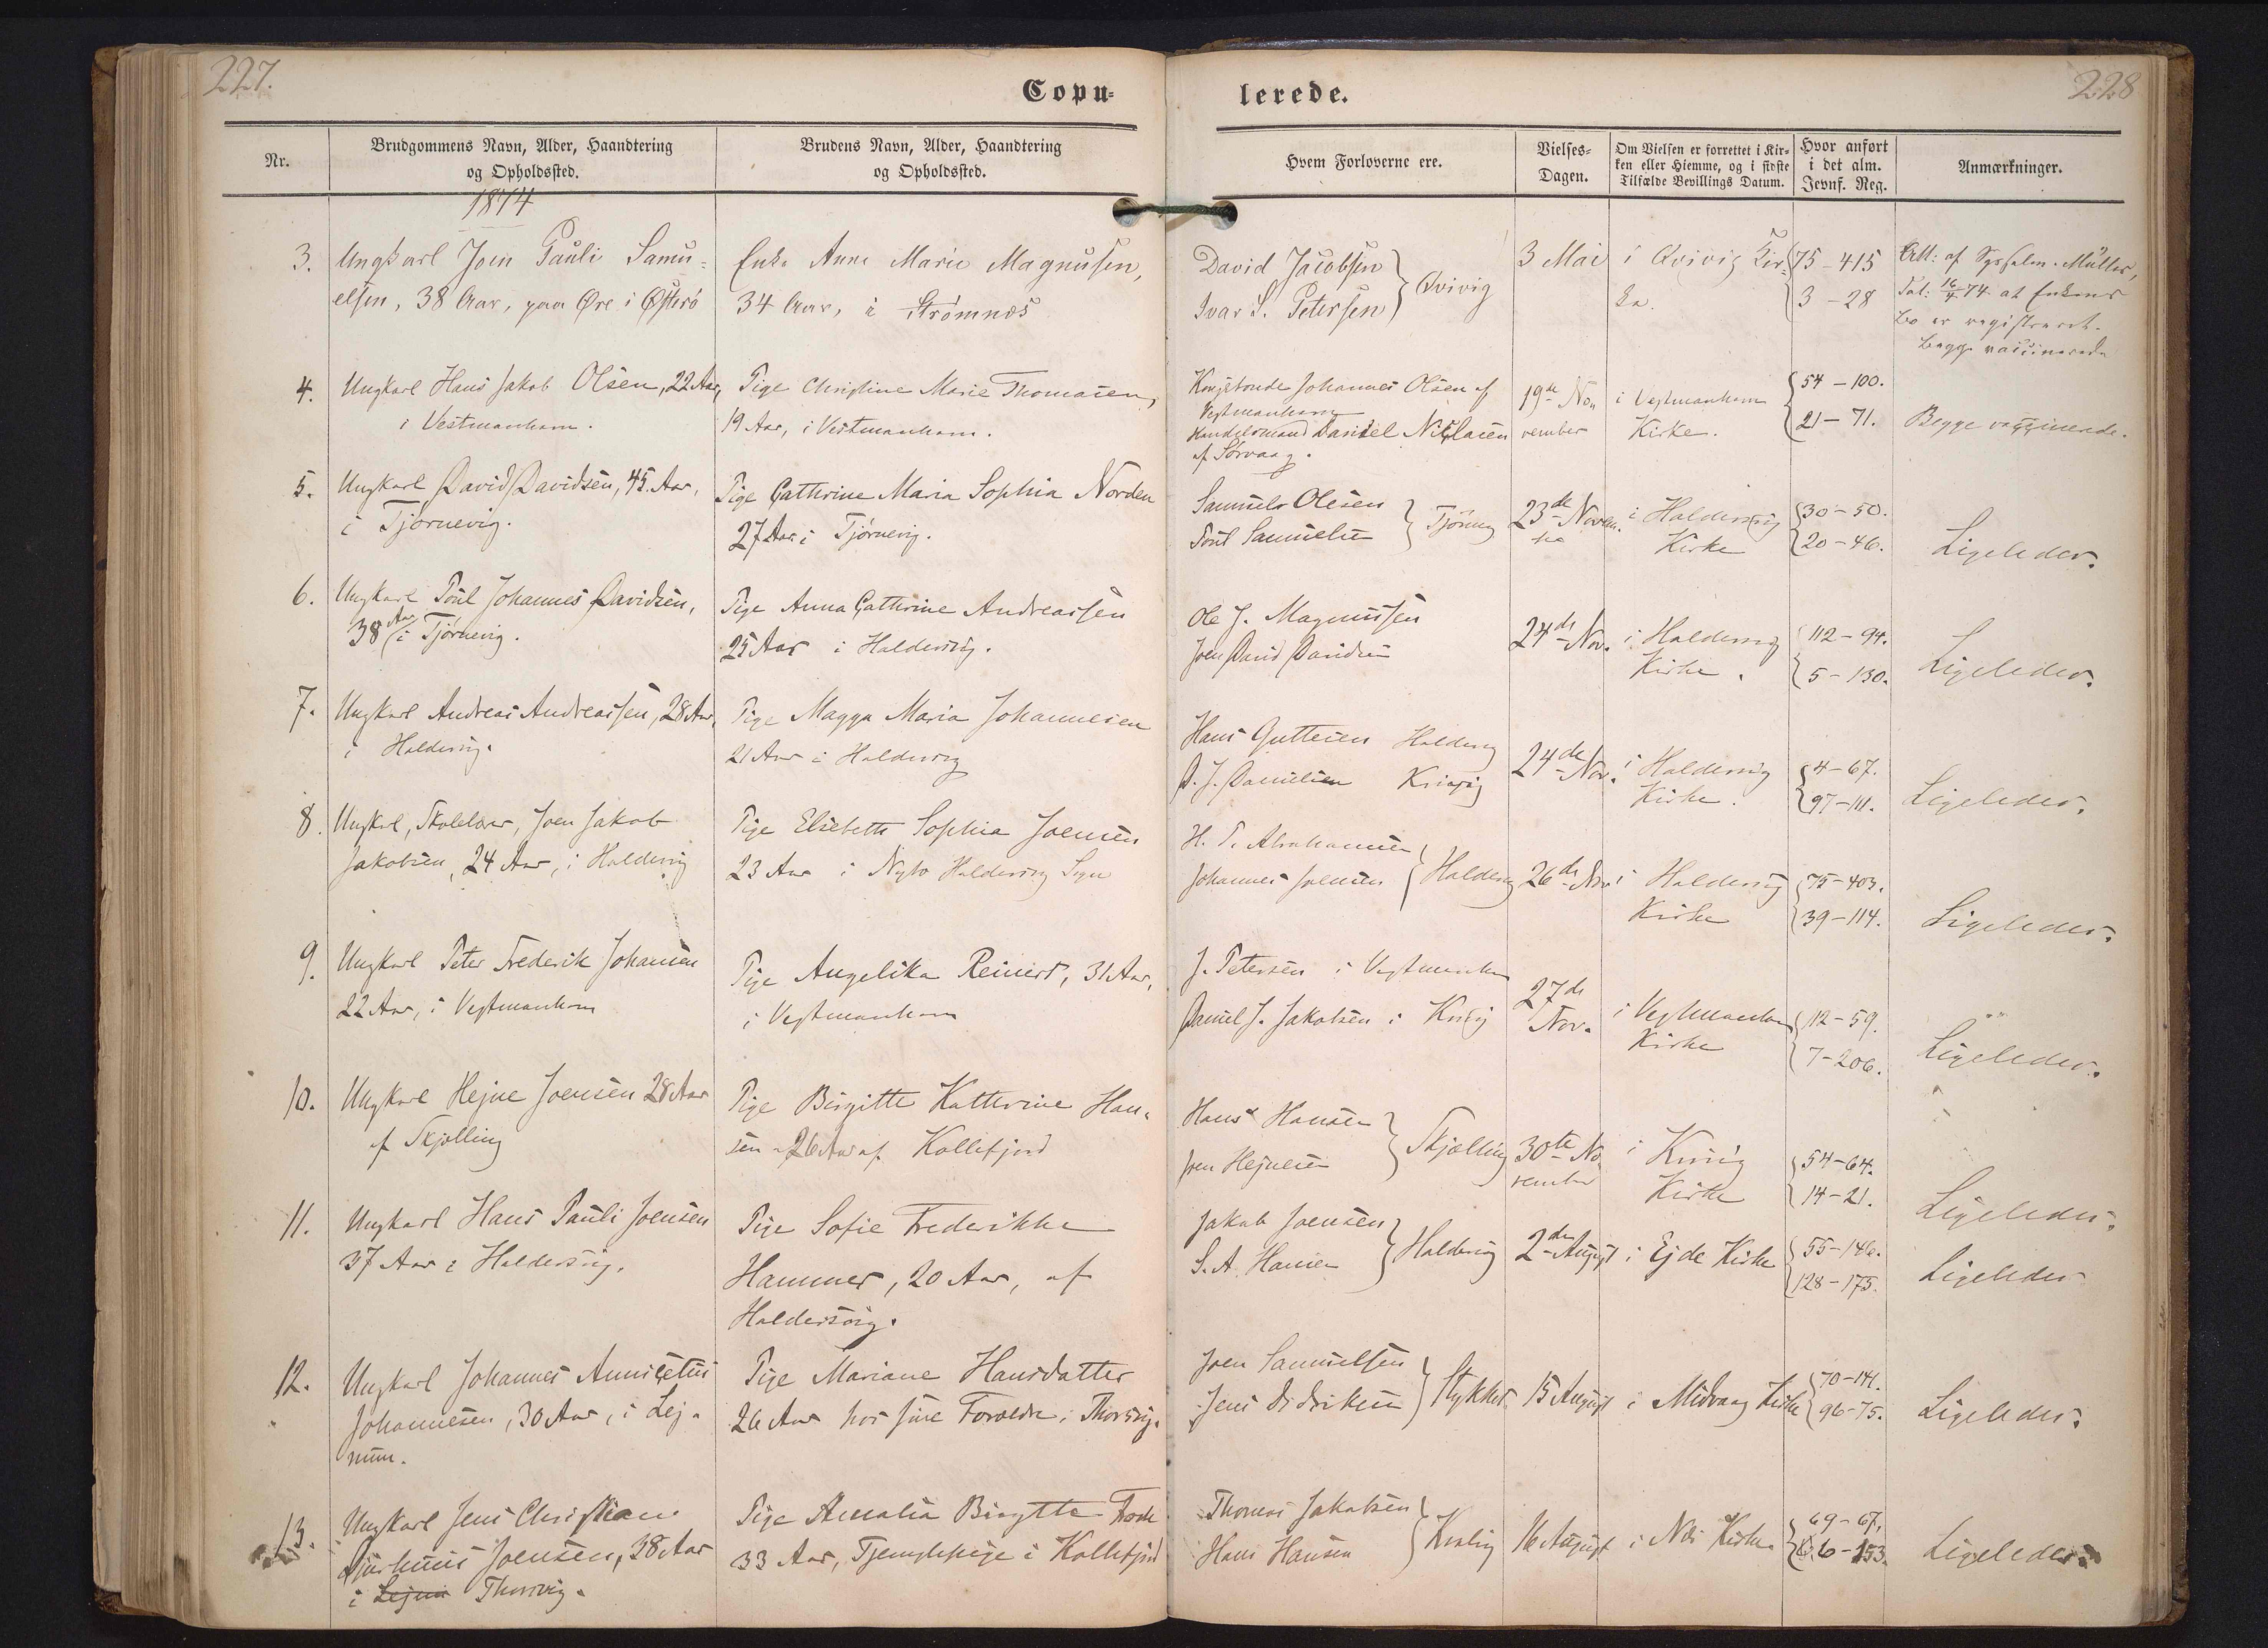 227.
Copu=
lerede.
228
Nr.
Brudgommens Navn, Alder, Haandtering
og Opholdssted.
Brudens Navn, Alder, Haandtering
og Opholdssted.
Hvem Forloverne ere.
Vielses-
Dagen.
Om Vielsen er forrettet i Kir-
ken eller Hjemme, og i sidste
Tilfælde Bevillings Datum.
Hvor anført
i det alm.
Jevnf. Reg.
Anmærkninger.
1874
3.
Ungkarl Joen Pauli Samu-
elsen, 38 Aar, paa Øre i Østerö
Enke Anne Marie Magnusen,
34 Aar, i Strømnæs
David Jacobsen
Ivar S. Petersen
Qvivig
3 Mai
i Qvivig Kir-
ke.
75-415
3-28
Att: af Sysselm. Müller,
Dat: 16/4 74 at Enkens
Bo er registreret.
Begge vaccinerede
4.
Ungkarl Hans Jakob Olsen, 22 Aar,
i Vestmanhavn.
Pige Christine Marie Thomasen,
19 Aar, i Vestmanhavn.
Kongsbonde Johannes Olsen af
Vestmanhavn
Handelsmand Daniel Niclasen
af Sörvaag.
19de No-
vember
i Vestmanhavn
Kirke.
54-100.
21-71.
Begge vaccinerede.
5.
Ungkarl David Davidsen, 45 Aar,
i Tjørnevig.
Pige Cathrine Maria Sophia Norden
27 Aar i Tjørnevig.
Samuel Olesen
Poul Samuelsen
Tjörnvig
23de Novem-
ber
i Haldersvig
Kirke
30-50.
20-46.
Ligeledes.
6.
Ungkarl Poul Johannes Davidsen,
38 Aar i Tjørnevig.
Pige Anna Cathrine Andreassen
25 Aar i Haldersvig.
Ole J. Magnussen
Joen David Davidsen
24de Nov.
i Haldersvig
Kirke.
112-94.
5-130.
Ligeledes.
7.
Ungkarl Andreas Andreassen, 28 Aar,
i Haldersvig.
Pige Magga Maria Johannesen
21 Aar i Haldersvig
Hans Guttesen Haldersvig
D. J. Danielsen Kvivig
24de Nov.
i Haldersvig
Kirke.
4-67.
97-111.
Ligeledes.
8.
Ungkarl, Skolelærer, Joen Jakob
Jakobsen, 24 Aar, i Haldersvig
Pige Elsebeth Sophia Joensen
23 Aar i Nybo Haldersvig Sogn
H. P. Abrahamsen
Johannes Joensen
Haldersvig
26de Nov
i Haldersvig
Kirke
75-403.
39-114.
Ligeledes.
9.
Ungkarl Peter Frederik Johansen
22 Aar, i Vestmanhavn
Pige Angelika Reinert, 31 Aar,
i Vestmanhavn
J. Petersen i Vestmanhavn
Daniel J. Jakobsen i Kvivig
27de
Nov.
i Vestmanhavn
Kirke
12-59.
7-206.
Ligeledes.
10.
Ungkarl Hejne Joensen 28 Aar
af Skjælling
Pige Birgitte Katherine Han-
sen 26 Aar af Kollefjord
Hans Hansen
Joen Hejnesen
Skjælling
30te No-
vember
i Kvivig
Kirke
54-64.
14-21.
Ligeledes.
11.
Ungkarl Hans Pauli Joensen
37 Aar i Haldersvig.
Pige Sofie Frederikke
Hammer, 20 Aar, af
Haldersvig.
Jakob Joensen
S. A. Hansen
Haldersvig
2den August
i Ejde Kirke
55-146.
128-175.
Ligeledes
12.
Ungkarl Johannes Anniçetus
Johannesen, 30 Aar, i Lej-
num.
Pige Mariane Hansdatter
26 Aar hos sine Forældre i Thorsvig.
Joen Samuelsen
Jens Didriksen
Stykket
15 August
i Midvaag Kirke
70-141.
96-75.
Ligeledes.
13.
Ungkarl Jens Christian
Joensen, 38 Aar
i Lejnum Thorsvig.
Pige Amalia Birgitte
33 Aar, Tjenestepige i Kollefjord
Thomas Jakobsen
Hans Hansen
Kvalvig
16 August
i Næs Kirke
69-67,
6-153.
Ligeledes.